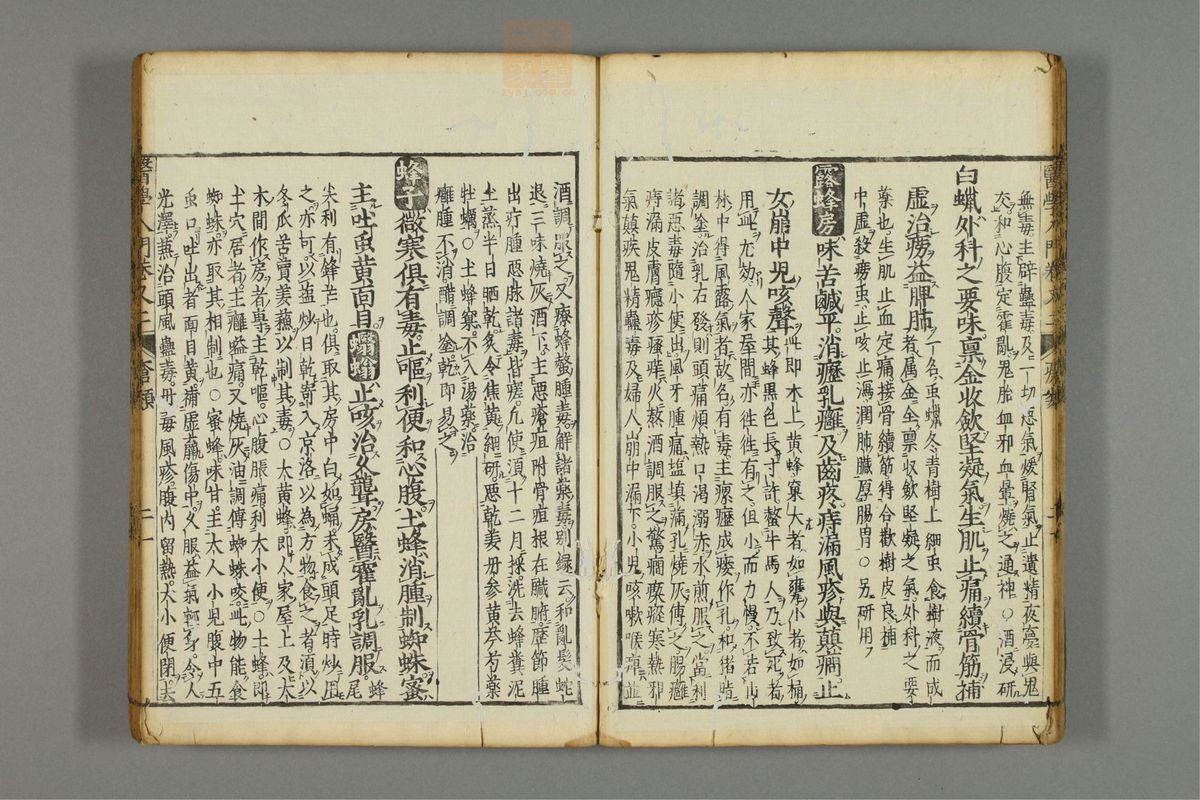 無毒主辟蠱毒及一切惡氣煖腎氣止遺精夜夢與鬼
交和心腹定霍亂鬼胎血邪血暈燒之通神○酒浸研
白蠟外科之要味稟金收歛堅凝氣生肌止痛續骨筋補
虛治癆益脾肺
丁名虫蠟冬青樹上細虫食樹液而成
者属金全稟收歛堅凝之氣外科之要
藥也生肌止血定痛接骨續筋得合歡樹皮良補
中虛殺癆虫止咳止瀉潤肺臟厚腸胃○另研用
露蜂房味苦鹹平消瘰乳癰及齒疼痔漏風疹與顛癇止
女崩中児咳聲
此即木上黄蜂窠大者如甕小者如桶
其蜂黑色長寸許螫牛馬人乃致死者
用此尤効人家屋間亦往往有之但小而力慢不若山
林中得風露氣者故名有毒主瘰癧成瘻作孔和猪脂
調塗治乳石發則頭痛煩熱口渴溺赤水煎服之當利
諸惡毒隨小便出風牙腫痛塩填滿孔燒灰傅之腸癰
痔漏皮膚癮疹瘙痒火熬酒調服之驚癇瘈瘲寒熱邪
氣顛疾鬼精蠱毒及婦人崩中漏下小児咳嗽喉痺並
酒調服之又療蜂螫腫毒解諸藥毒別録云和亂髮蛇
退三味燒灰酒下主惡瘡疽附骨疽根在臟腑歷節腫
出疔腫惡脉諸毒皆瘥凡使須十二月採洗去蜂糞泥
土蒸半日晒乾炙令焦黄細研惡乾姜丹參黄芩芍藥
牡蠣○土蜂窠不入湯藥治
癰腫不消醋調塗乾即易之
蜂子微寒俱有毒止嘔利便和心腹土蜂消腫制蜘蛛蜜
主吐虫黄面目蠮螉止咳治久聾房醫霍亂乳調服
蜂尾
尖利有鋒芒也俱取其房中白如蛹未成頭足時炒用
之亦可以盐炒日乾寄入京洛以為方物食之者須以
冬瓜苦蕒姜蘓以制其毒○大黄蜂即人家屋上及大
木間作房者是主乾嘔心腹脹痛利大小便○土蜂即
土穴居者主癰嗌痛又燒灰油調傅蜘蛛咬此物能食
蜘蛛亦取其相制也○蜜蜂味甘主大人小児腹中五
虫口吐出者面目黄補虛羸傷中久服益氣輕身令人
光澤兼治頭風蠱毒丹毒風疹腹内留熱大小便閉去
醫學入門卷又二